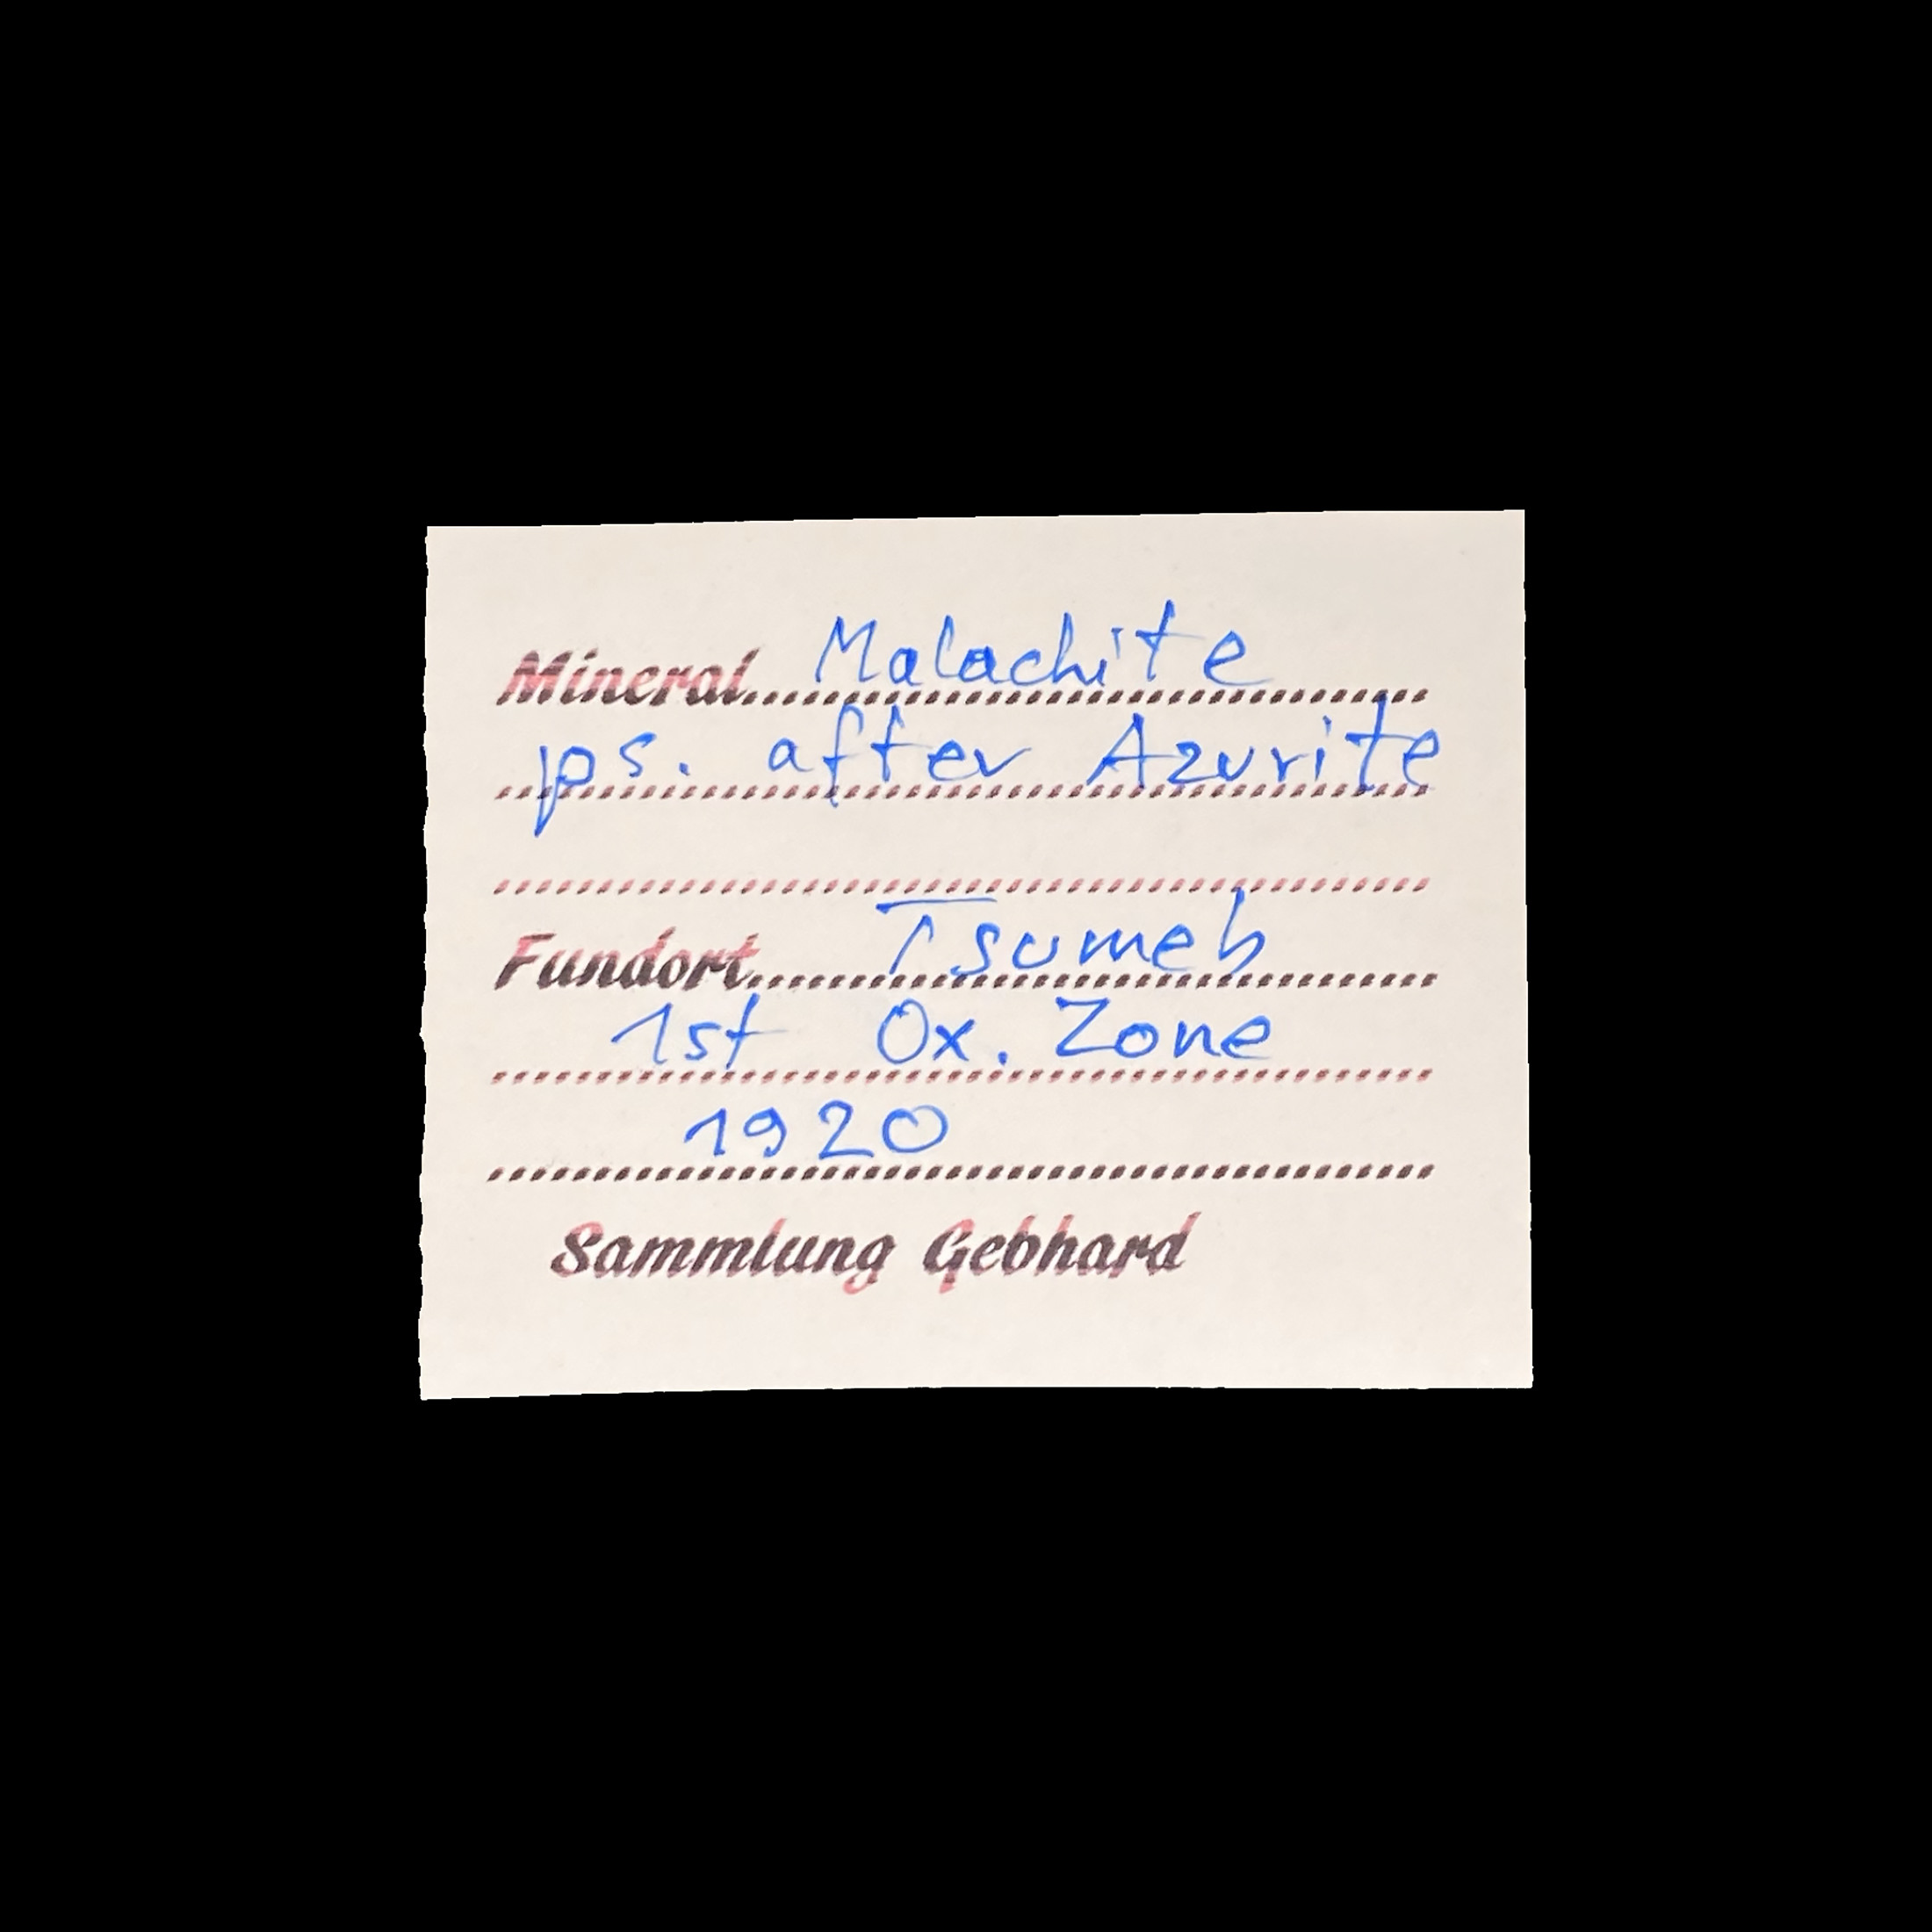 Mineral Malachite
ps. after Azurite
Fundort Tsumeb
1st Ox. Zone
1920
Sammlung Gebhard